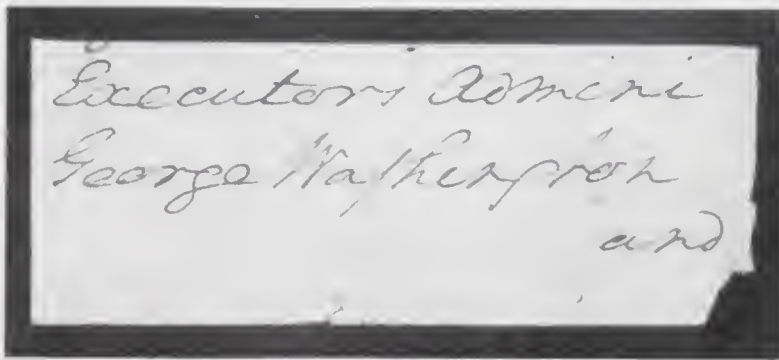 Executors Admini
George Washington
and